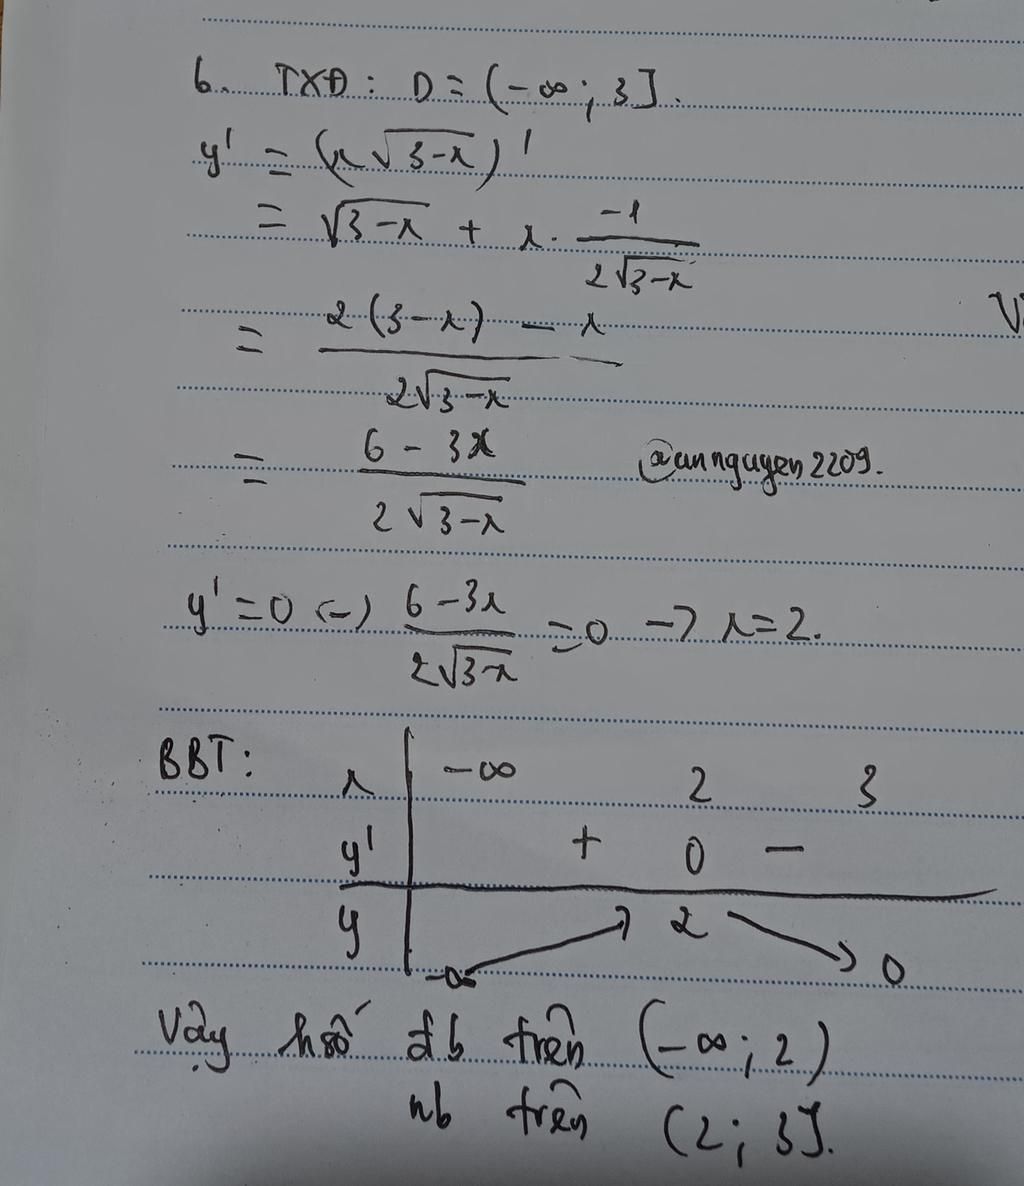 6. TXĐ: D = (-∞; 3].
y' = (x√(3-x))'
= √(3-x) + x. -1/(2√(3-x))
= (2(3-x) - x)/(2√(3-x))
= (6 - 3x)/(2√(3-x))
@annguyen2209.
y' = 0 (-) (6-3x)/(2√(3-x)) = 0 -> x = 2.
BBT:
x | -∞ 2 3
y' | + 0 -
y | -∞ ↗ 2 ↘ 0
Vậy hsố đb trên (-∞; 2)
nb trên (2; 3].